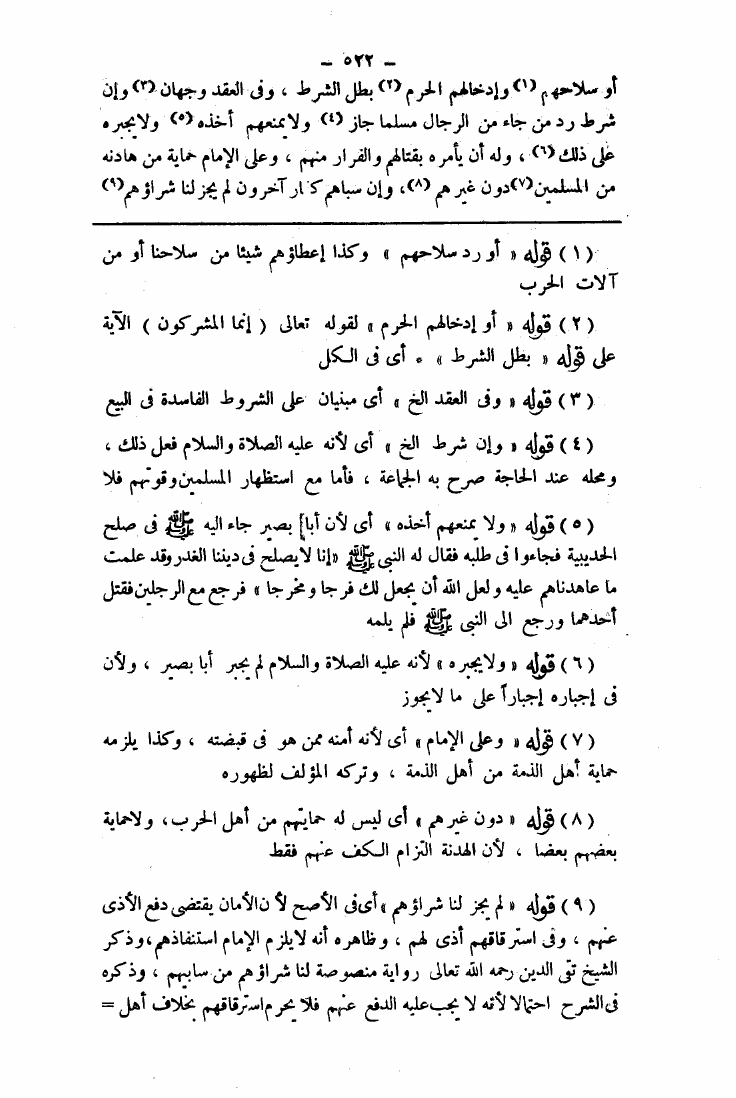 — ٥٢٢ —
أو سلاحهم (١) وإدخالهم الحرم (٢) بطل الشرط ، وفى العقد وجهان (٣) وإن
شرط رد من جاء من الرجال مسلما جاز (٤) ولا يمنعهم أخذه (٥) ولايجبره
على ذلك (٦) ، وله أن يأمره بقتالهم والفرار منهم ، وعلى الإمام حماية من هادنه
من المسلمين (٧) دون غيرهم (٨) ، وإن سباهم كفار آخرون لم يجز لنا شراؤهم (٩)
(١) قوله « أو رد سلاحهم » وكذا إعطاؤهم شيئا من سلاحنا أو من
آلات الحرب
(٢) قوله « أو إدخالهم الحرم » لقوله تعالى ( إنما المشركون ) الآية
على قوله « بطل الشرط » • أى فى الكل
(٣) قوله « وفى العقد الخ » أى مبنيان على الشروط الفاسدة فى البيع
(٤) قوله « وإن شرط الخ » أى لأنه عليه الصلاة والسلام فعل ذلك ،
ومحله عند الحاجة صرح به الجماعة ، فأما مع استظهار المسلمين وقوتهم فلا
(٥) قوله « ولا يمنعهم أخذه » أى لأن أبا بصير جاء اليه ﷺ فى صلح
الحديبية فجاءوا فى طلبه فقال له النبى ﷺ « إنا لايصلح فى ديننا الغدر وقد علمت
ما عاهدناهم عليه ولعل الله أن يجعل لك فرجا ومخرجا » فرجع مع الرجلين فقتل
أحدهما ورجع الى النبى ﷺ فلم يلمه
(٦) قوله « ولايجبره » لأنه عليه الصلاة والسلام لم يجبر أبا بصير ، ولأن
فى إجباره إجباراً على ما لايجوز
(٧) قوله « وعلى الإمام » أى لأنه أمنه ممن هو فى قبضته ، وكذا يلزمه
حماية أهل الذمة من أهل الذمة ، وتركه المؤلف لظهوره
(٨) قوله « دون غيرهم » أى ليس له حمايتهم من أهل الحرب، ولاحماية
بعضهم بعضا ، لأن الهدنة التزام الكف عنهم فقط
(٩) قوله « لم يجز لنا شراؤهم » أى فى الأصح لأن الأمان يقتضى دفع الأذى
عنهم ، وفى استرقاقهم أذى لهم ، وظاهره أنه لايلزم الإمام استنقاذهم، وذكر
الشيخ تقى الدين رحمه الله تعالى رواية منصوصة لنا شراؤهم من سابيهم ، وذكره
فى الشرح احتمالا لأنه لا يجب عليه الدفع عنهم فلا يحرم استرقاقهم بخلاف أهل =